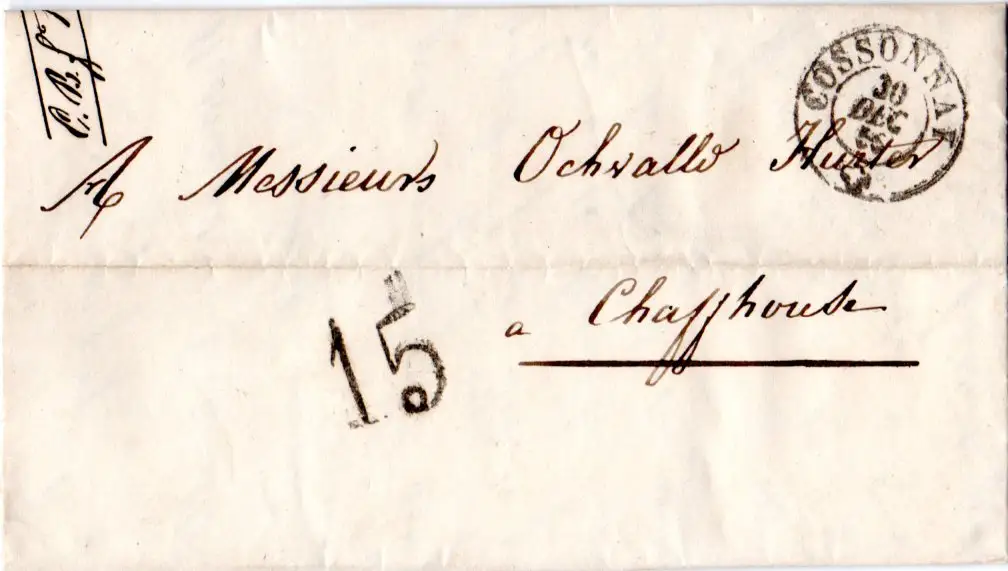 C. B. f°
COSSONNAY
30
DEC
A Messieurs Ochvalld Hurter
15
a Chaffhouse